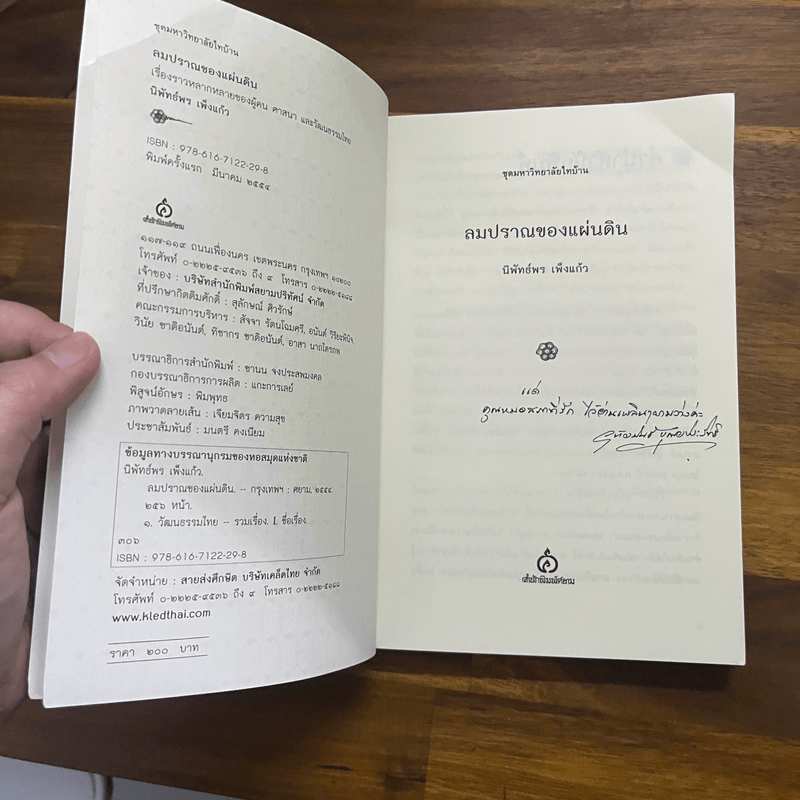 ชุดมหาวิทยาลัยไทบ้าน
ลมปราณของแผ่นดิน
เรื่องราวหลากหลายของผู้คน ศาสนา และวัฒนธรรมไทย
นิพัทธ์พร เพ็งแก้ว
ISBN : 978-616-7122-29-8
พิมพ์ครั้งแรก มีนาคม ๒๕๕๔
สำนักพิมพ์สยาม
๑๑๗-๑๑๙ ถนนเฟื่องนคร เขตพระนคร กรุงเทพฯ ๑๐๒๐๐
โทรศัพท์ ๐-๒๒๒๕-๙๕๓๖ ถึง ๙ โทรสาร ๐-๒๒๒๒-๕๑๘๘
เจ้าของ : บริษัทสำนักพิมพ์สยามปริทัศน์ จำกัด
ที่ปรึกษากิตติมศักดิ์ : สุลักษณ์ ศิวรักษ์
คณะกรรมการบริหาร : สัจจา รัตนโฉมศรี, อนันต์ วิริยะพินิจ
วินัย ชาติอนันต์, ทิชากร ชาติอนันต์, อาสา นาถไตรภพ
บรรณาธิการสำนักพิมพ์ : ชานน จงประสพมงคล
กองบรรณาธิการการผลิต : แกะการเลย์
พิสูจน์อักษร : พิมพุทธ
ภาพวาดลายเส้น : เจียมจิตร ความสุข
ประชาสัมพันธ์ : มนตรี คงเนียม
ข้อมูลทางบรรณานุกรมของหอสมุดแห่งชาติ
นิพัทธ์พร เพ็งแก้ว.
ลมปราณของแผ่นดิน. -- กรุงเทพฯ : ศยาม, ๒๕๕๔.
๒๕๖ หน้า.
๑. วัฒนธรรมไทย -- รวมเรื่อง. I. ชื่อเรื่อง.
๓๐๖
ISBN : 978-616-7122-29-8
จัดจำหน่าย : สายส่งศึกษิต บริษัทเคล็ดไทย จำกัด
โทรศัพท์ ๐-๒๒๒๕-๙๕๓๖ ถึง ๙ โทรสาร ๐-๒๒๒๒-๕๑๘๘
www.kledthai.com
ราคา ๒๐๐ บาท
ชุดมหาวิทยาลัยไทบ้าน
ลมปราณของแผ่นดิน
นิพัทธ์พร เพ็งแก้ว
แด่
คุณหมอ ที่รัก ไว้อ่านเพลินๆยามว่างค่ะ
สำนักพิมพ์ศยาม